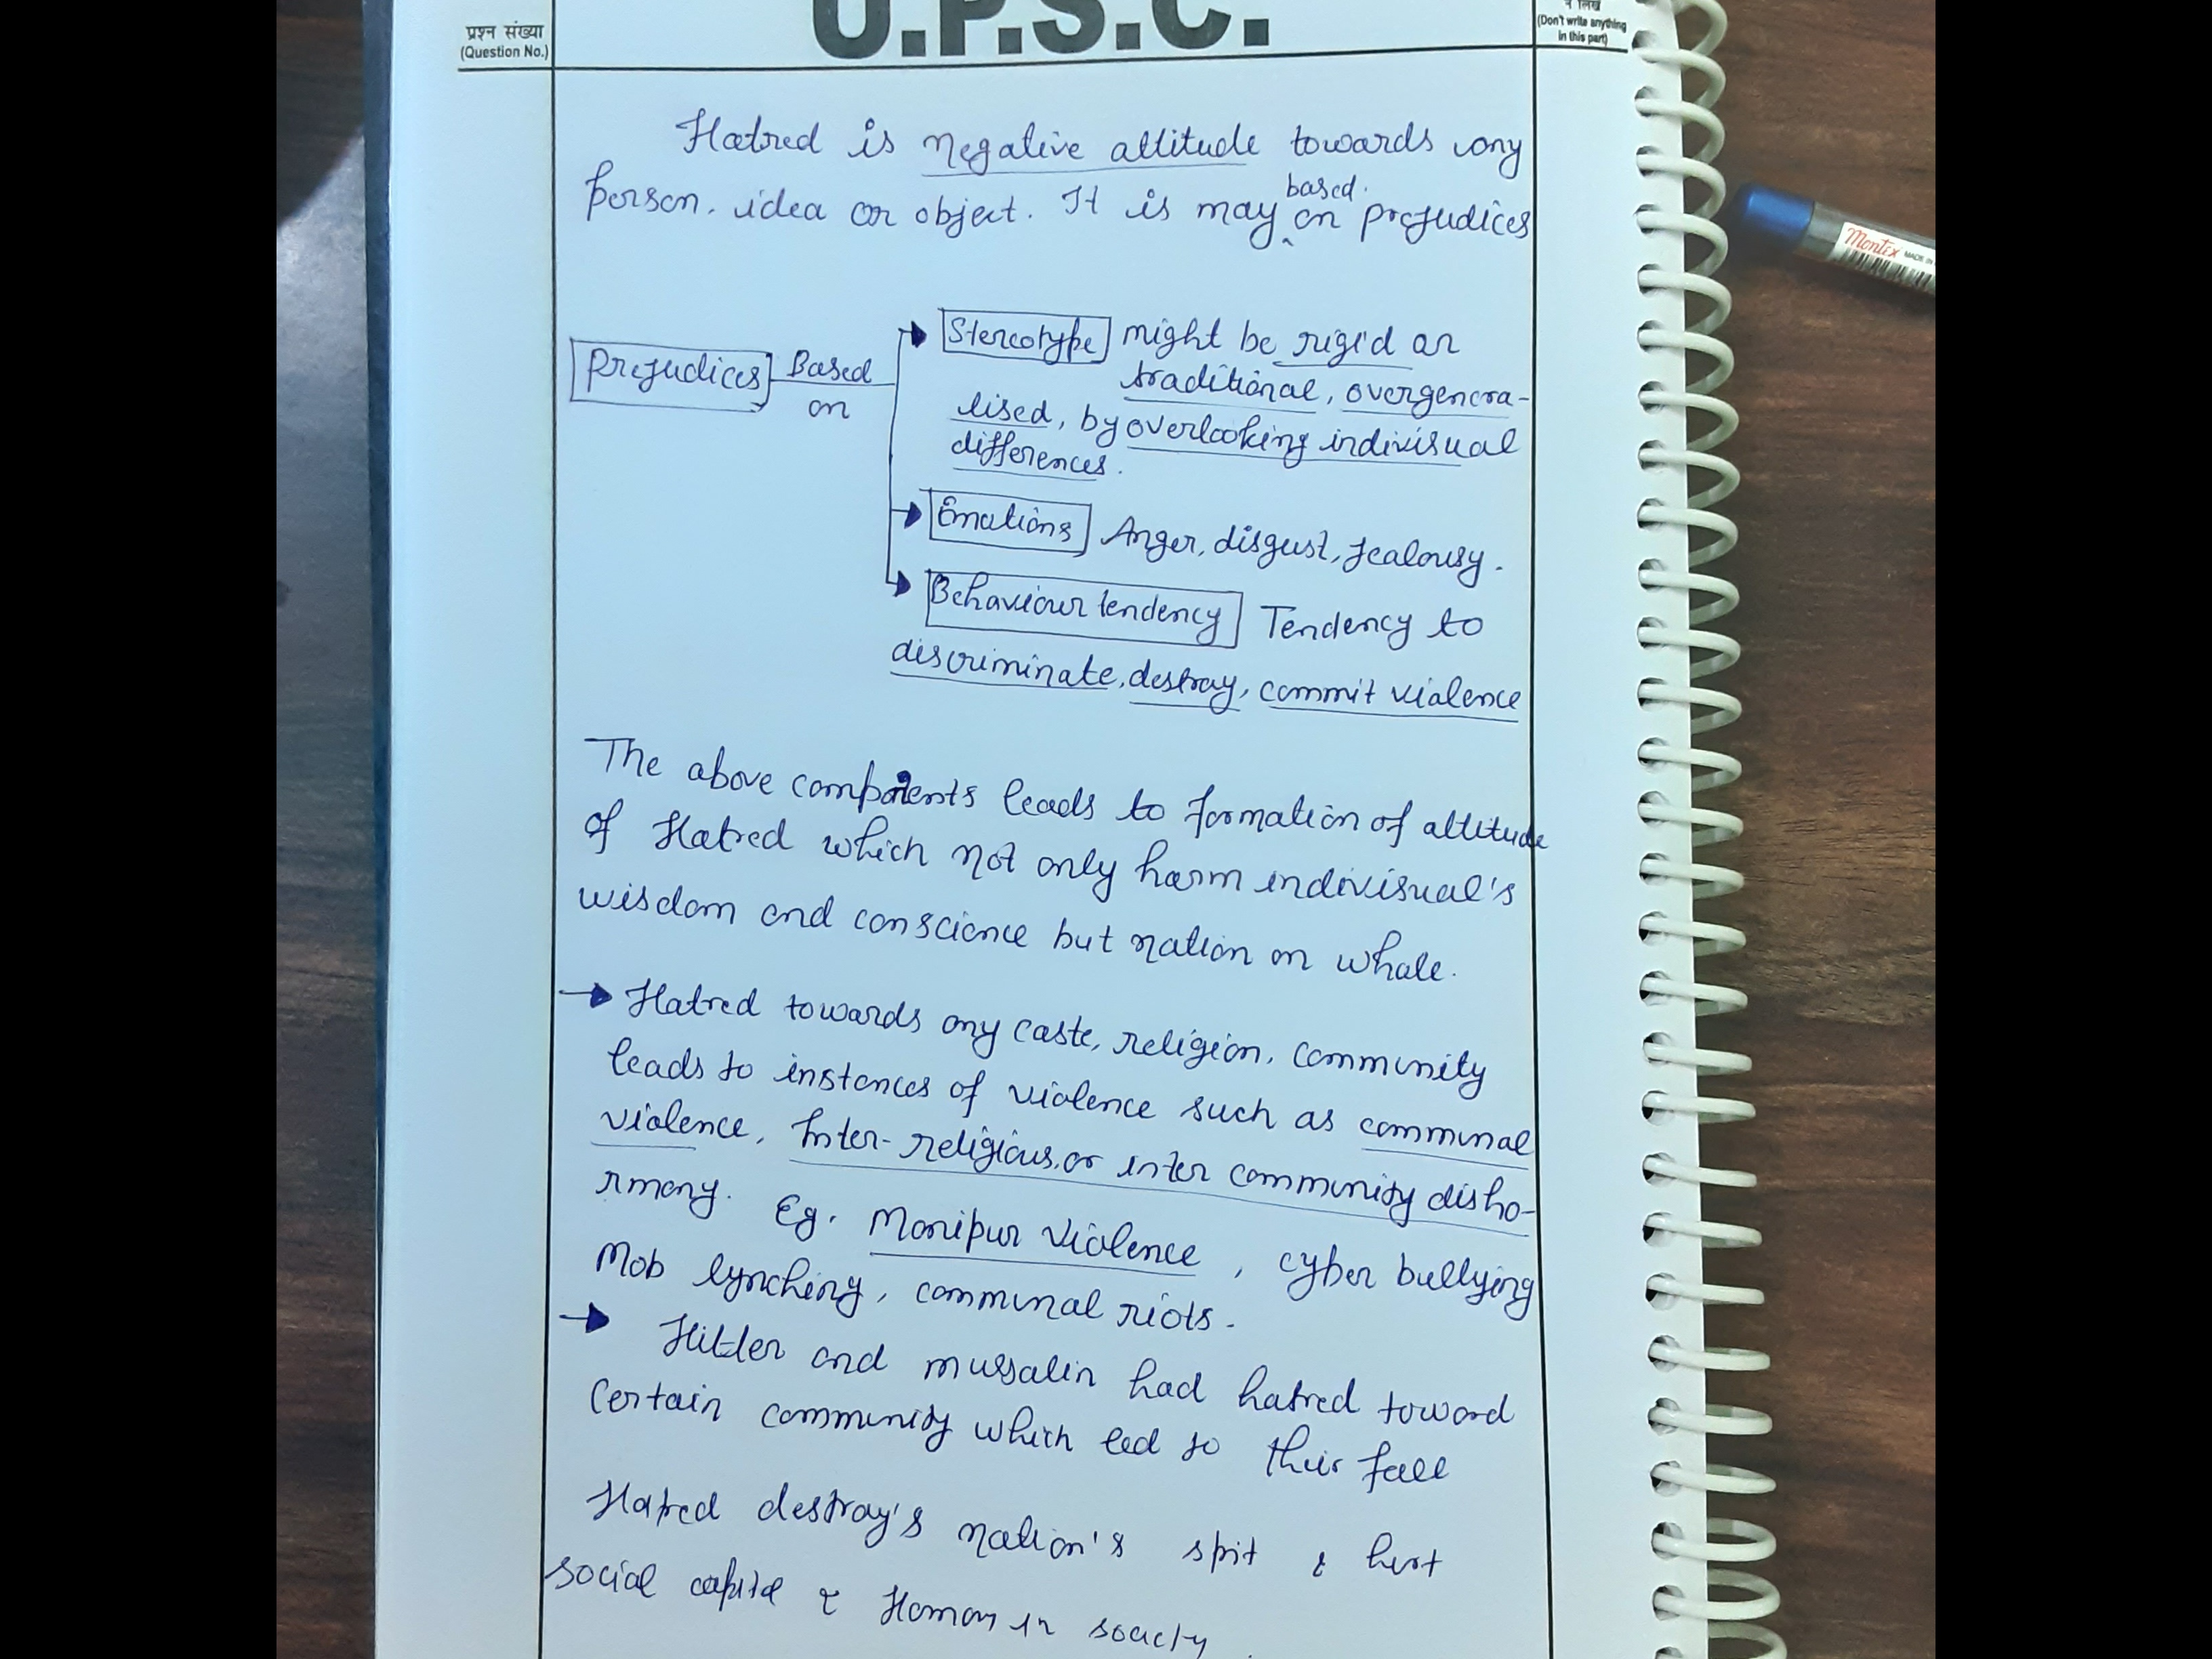 प्रश्न संख्या
(Question No.)
U.P.S.C.
न लिखें
(Don't write anything
in this part)
Hatred is negative attitude towards any
person. idea or object. It is may based. on prejudices
Prejudices Based on
Stereotype might be rigid or
traditional, overgenera-
lised, by overlooking indivisual
differences.
Emotions Anger, disgust, jealousy.
Behaviour tendency Tendency to
discriminate, destroy, commit violence
The above components leads to formation of attitude
of Hatred which not only harm indivisual's
wisdom and conscience but nation on whole.
→ Hatred towards any caste, religion, community
leads to instances of violence such as communal
violence, Inter-religious or inter community disho-
rmony. Eg. Manipur violence, cyber bullying
Mob lynching, communal riots.
→ Hitler and mussolin had hatred toward
certain community which led to their fall
Hatred destroy's nation's spit & hurt
social capital & Harmony in society.
Montex
MADE IN